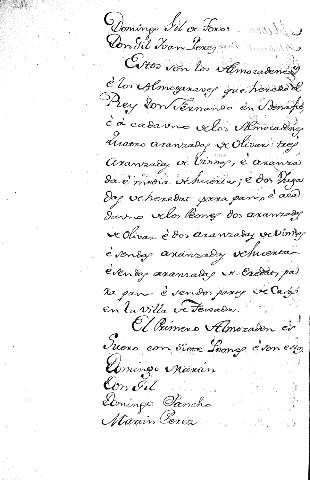 Domingo Gil de Toro
Don Gil Ivan Perez
Estos son los Almocadenes
è los Almogavares que heredò el
Rey Don Fernando en
è à cada uno de los Almocadenes
quatro aranzadas de Olivar tres
aranzadas de Viñas, è aranza
da è media de huerta; è dos Yuga
das de heredat para pan, è à ca
da uno de los Peones dos aranzadas
de Olivar è dos aranzadas de Viñas
è sendas aranzadas de huerta
è sendas aranzadas de pa
ra pan è sendos pares de Casas
en la Villa de
El Primero Almocaden es
con Peones è son estos
Domingo Martin
Don Gil
Domingo Sancho
Martin Perez